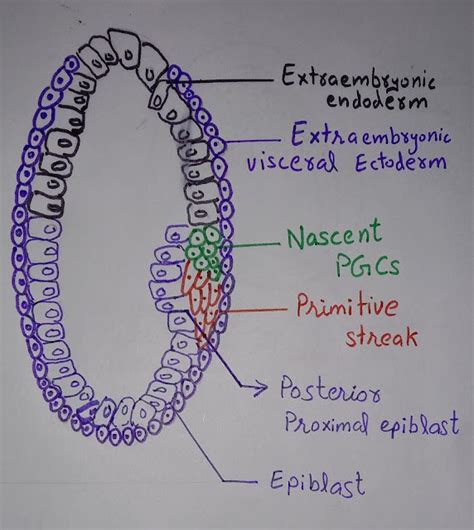 Extraembryonic
endoderm
Extraembryonic
visceral Ectoderm
Nascent
PGCs
Primitive
streak
Posterior
Proximal epiblast
Epiblast